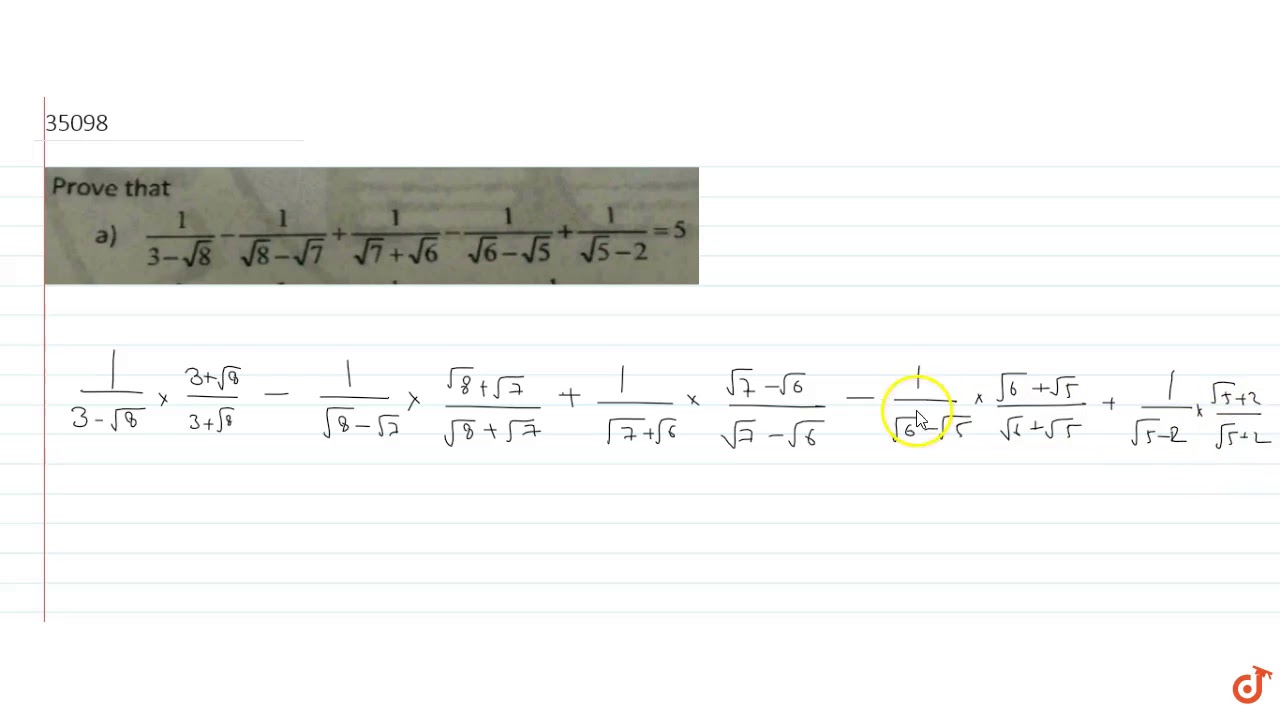 35098
Prove that
a) 1/(3−√8) − 1/(√8−√7) + 1/(√7+√6) − 1/(√6−√5) + 1/(√5−2) = 5
1/(3−√8) × (3+√8)/(3+√8) − 1/(√8−√7) × (√8+√7)/(√8+√7) + 1/(√7+√6) × (√7−√6)/(√7−√6) − 1/(√6−√5) × (√6+√5)/(√6+√5) + 1/(√5−2) × (√5+2)/(√5+2)